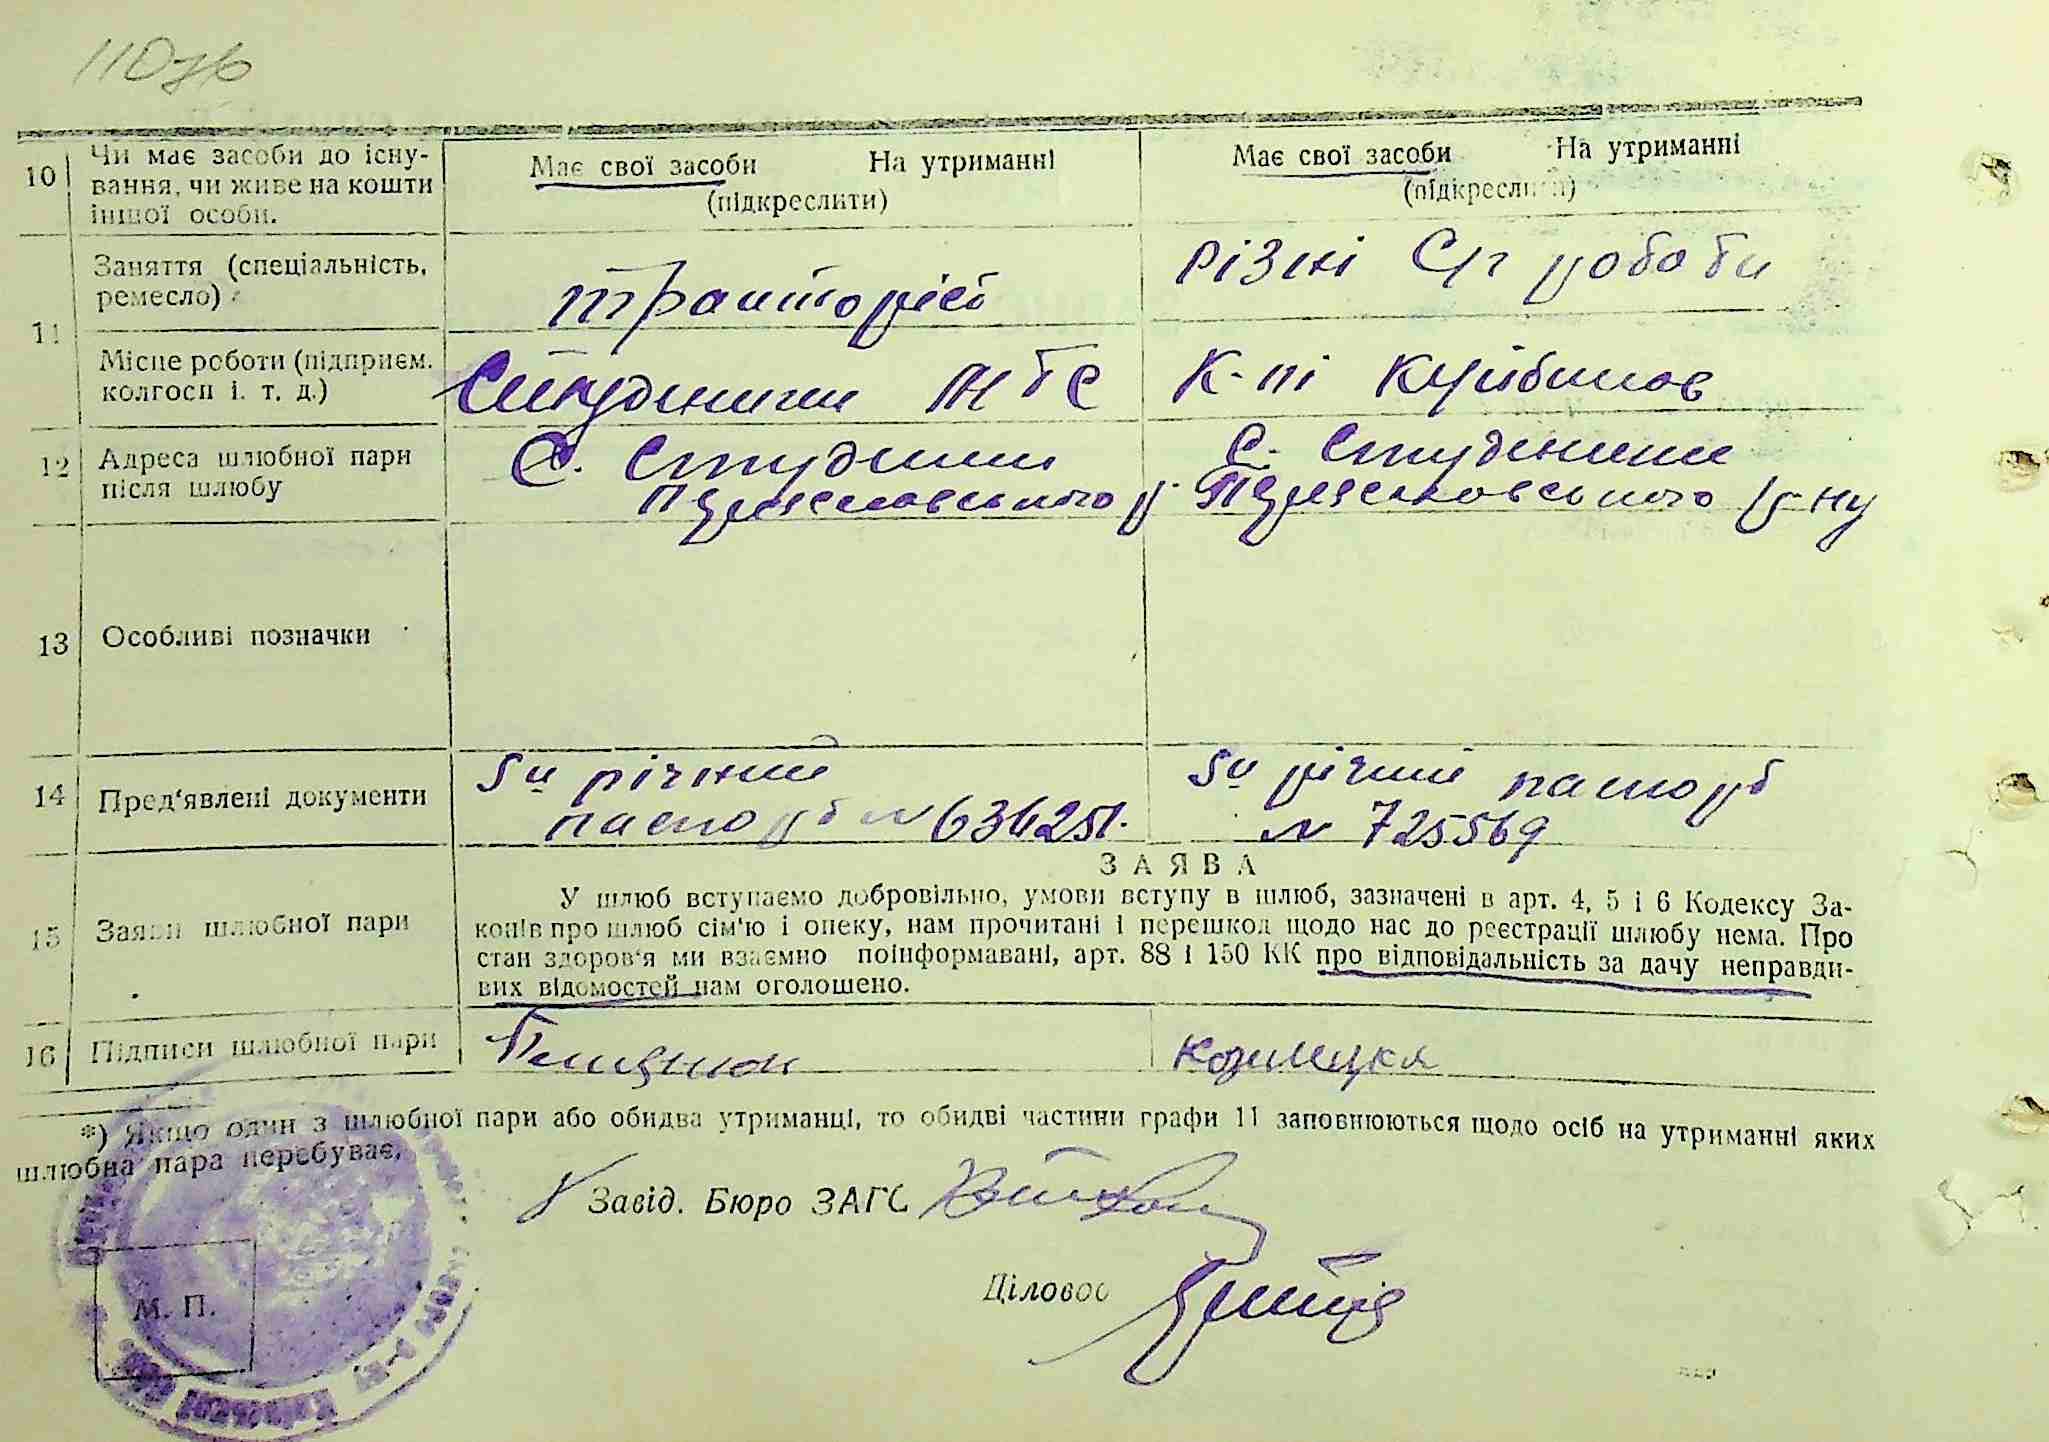 110зв
10 Чи має засоби до існу-
вання, чи живе на кошти
іншої особи.
Має свої засоби На утриманні
(підкреслити)
Має свої засоби На утриманні
(підкреслити)
11 Заняття (спеціальність,
ремесло)
тракторіст
різні С/г роботи
Місце роботи (підприєм.
колгосп і. т. д.)
Студеники МТС
К-пі Куйбишев
12 Адреса шлюбної пари
після шлюбу
С. Студеники
Переяславського р.
С. Студеники
Переяславського р-ну
13 Особливі позначки
14 Пред'явлені документи
5и річний
паспорт № 636251.
5и річний паспорт
№ 725569
15 Заяви шлюбної пари
ЗАЯВА
У шлюб вступаємо добровільно, умови вступу в шлюб, зазначені в арт. 4, 5 і 6 Кодексу За-
конів про шлюб сім'ю і опеку, нам прочитані і перешкод щодо нас до реєстрації шлюбу нема. Про
стан здоров'я ми взаємно поінформавані, арт. 88 і 150 КК про відповідальність за дачу неправди-
вих відомостей нам оголошено.
16 Підписи шлюбної пари
*) Якщо один з шлюбної пари або обидва утриманці, то обидві частини графи 11 заповнюються щодо осіб на утриманні яких
шлюбна пара перебуває.
Завід. Бюро ЗАГС
Діловод
М. П.